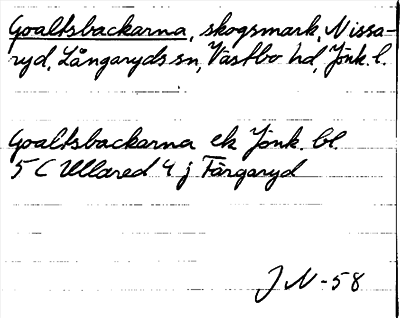 Goaltsbackarna, skogsmark, Nissa-
ryd, Långaryds sn, Västbo hd, Jönk. l.
Goaltsbackarna ek Jönk. bl.
5 C Ullared 4 j Färgaryd
J N -58